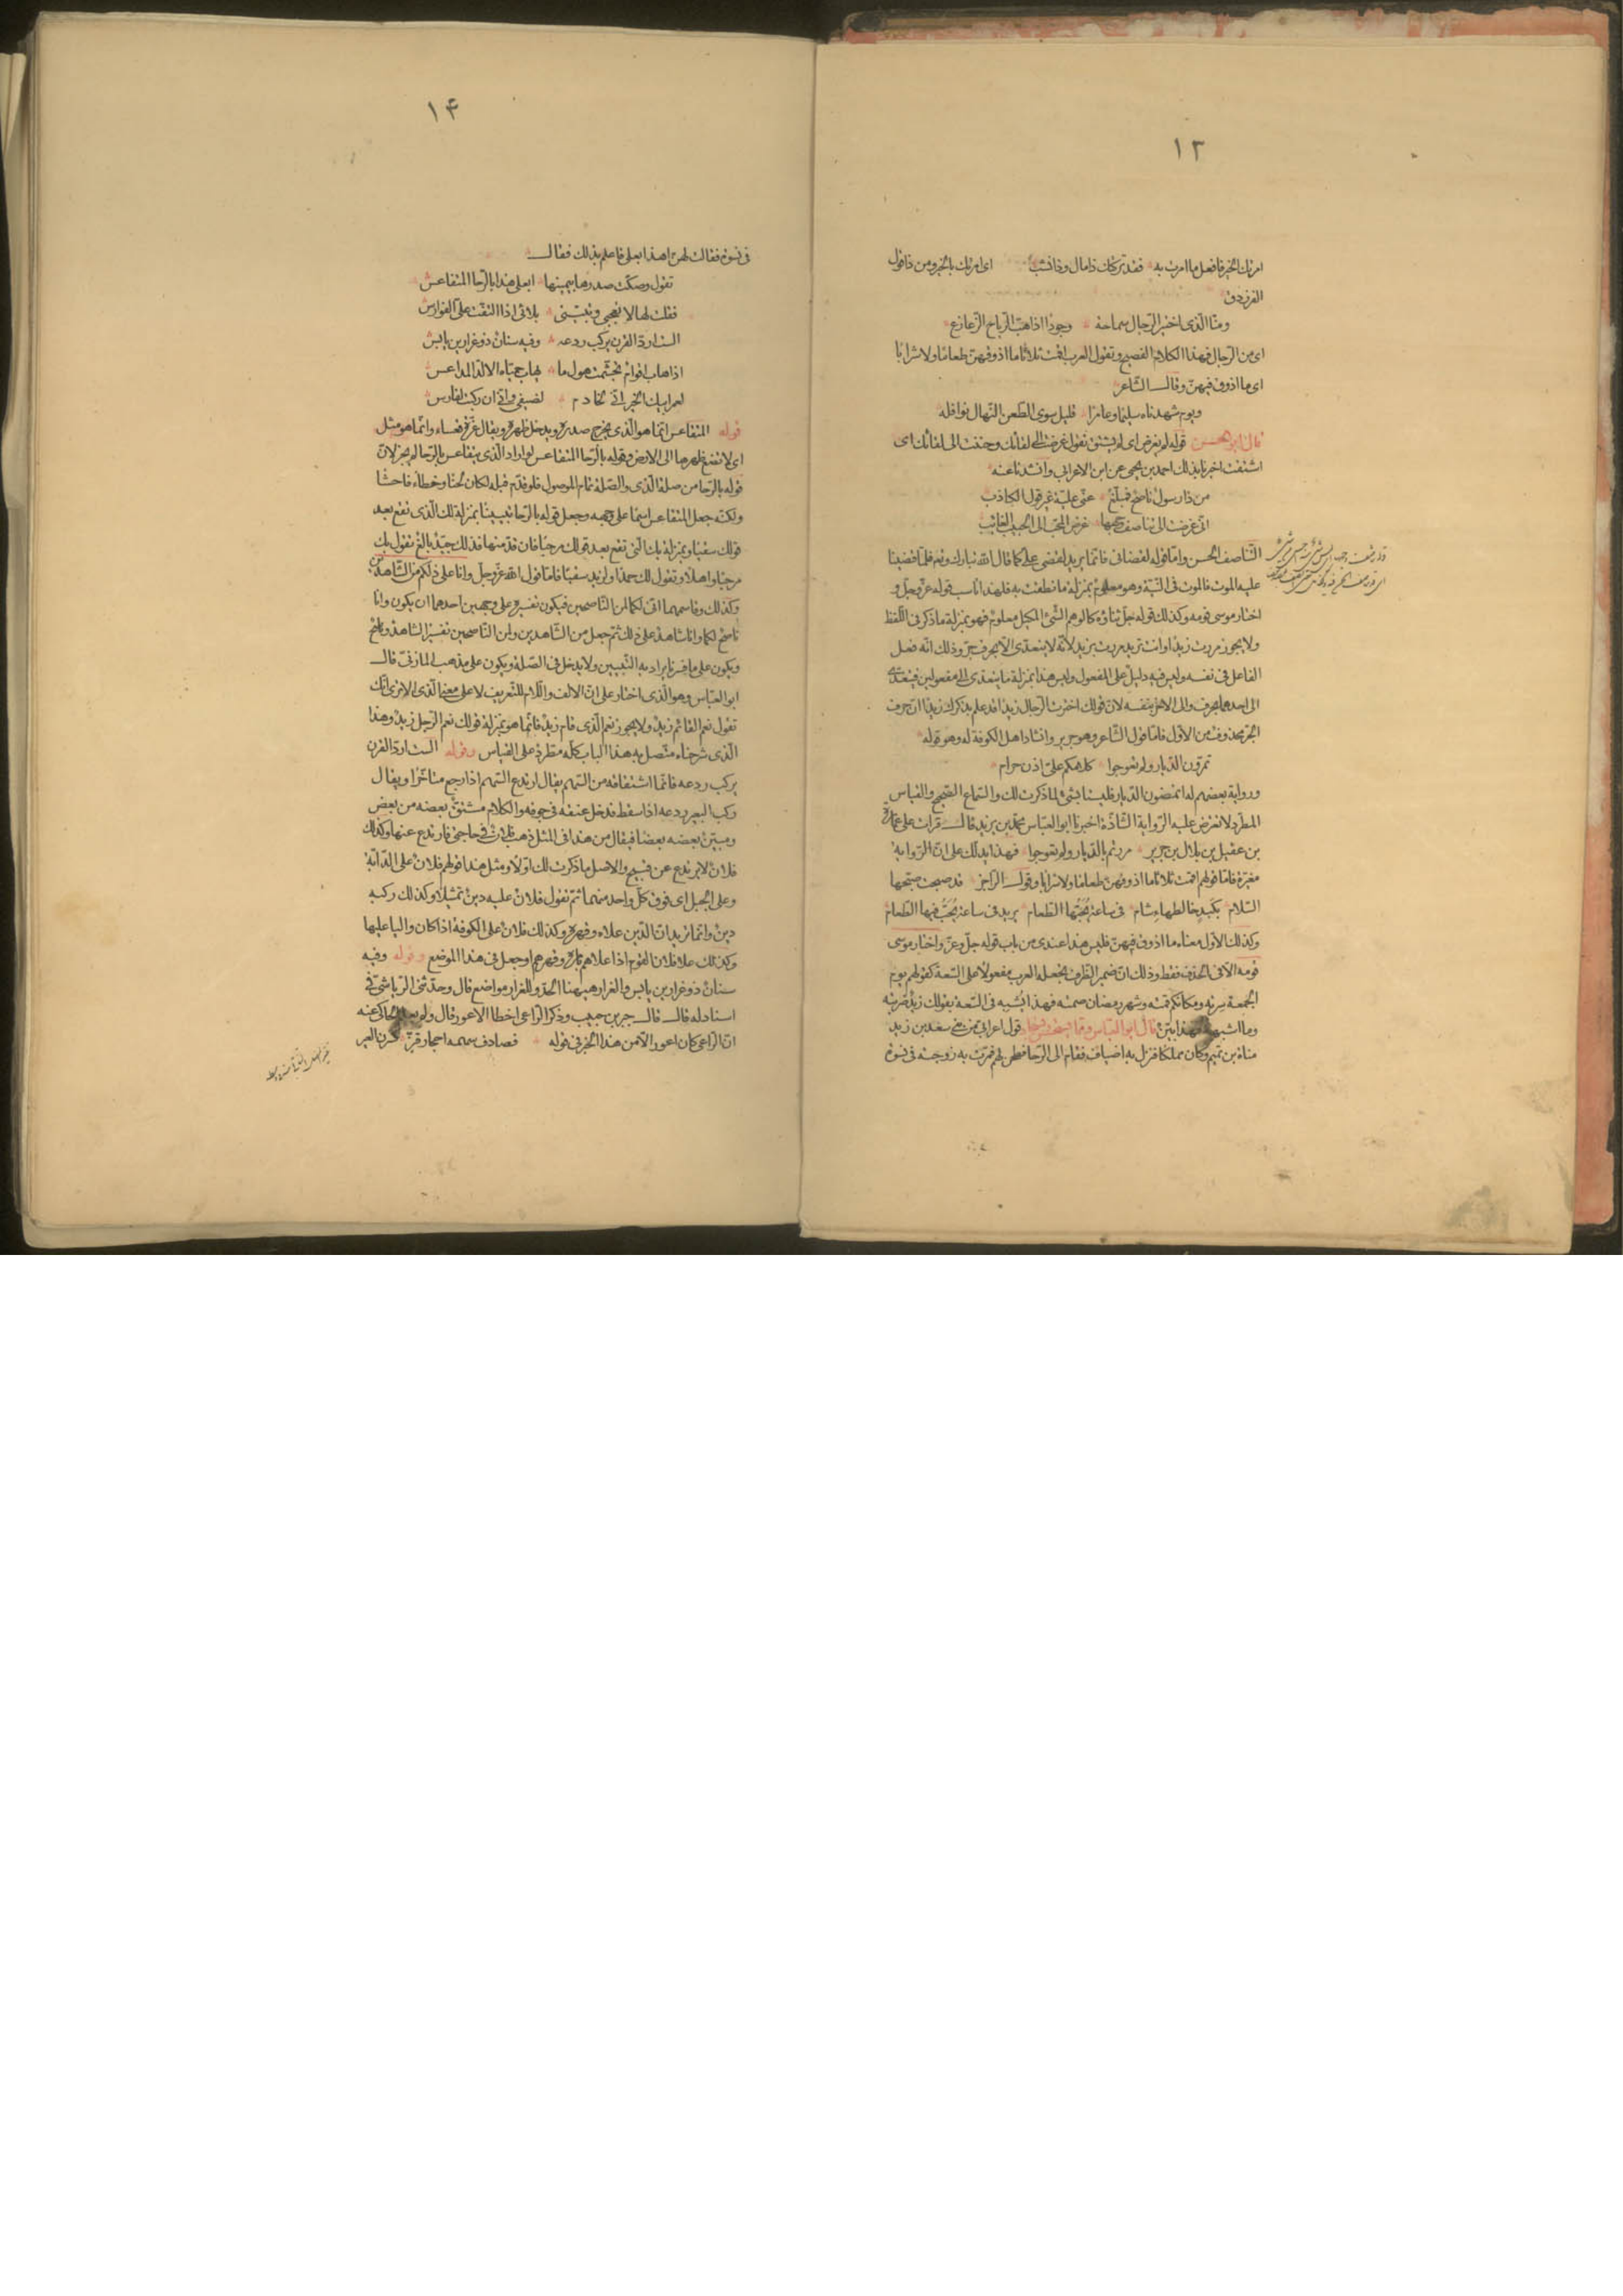 ١٣
امرتك الخير فافعل ما امرت به فقد تركتك ذا مال وذا نشب اى امرتك بالخير ومن ذا قول
الفرزدق
ومنّا الّذى اختير الرّجال سماحة وجودًا اذا هبّ الرّياح الزّعازع
اى من الرّجال فهذا الكلام الفصيح وتقول العرب اقمت ثلاثًا ما اذوقهنّ طعامًا ولا شرابًا
اى ما اذوق فيهنّ وقال الشّاعر
ويوم شهدناه سليمًا وعامرًا قليل سوى الطّعن النّهال نوافله
قال ابو الحسن قوله لم يغرض اى لم يشتق تقول غرضت الى لقائك وحننت الى لقائك اى
اشتقت اخبرنا بذلك احمد بن يحيى عن ابن الاعرابى وانشدنا عنه
من ذا رسول ناصح فمبلّغ عنّى عليّة غير قول الكاذب
انّى غرضت الى تناصف وجهها غرض المحبّ الى الحبيب الغائب
التّناصف الحسن وامّا قوله لقضانى فانّما يريد لقضى علىّ كما قال الله تبارك وتعالى فلمّا قضينا
عليه الموت فالموت فى النّيّة وهو معلوم بمنزلة ما نطقت به فلهذا ناسب قوله عزّ وجلّ و
اختار موسى قومه وكذلك قوله جلّ ثناؤه كالوهم الشّئ المكيل معلوم فهو بمنزلة ما ذكر فى اللّفظ
ولا يجوز مررت زيدًا وانت تريد مررت بزيد لانّه لا يتعدّى الّا بحرف جرّ وذلك انّه فعل
الفاعل فى نفسه وليس فيه دليل على المفعول وليس هذا بمنزلة ما يتعدّى الى مفعولين فيتعدّى
الى احدهما بحرف والى الاخر بنفسه لانّ قولك اخترت الرّجال زيدًا قد علم بذكرك زيدًا انّ حرف
الجرّ محذوف من الاوّل فامّا قول الشّاعر وهو جرير وانشاد اهل الكوفة له وهو قوله
تمرّون الدّيار ولم تعوجوا كلامكم علىّ اذن حرام
ورواية بعضهم له اتمضون الدّيار فليسا بشئ لما ذكرت لك والسّماع الصّحيح والقياس
المطّرد لا تعترض عليه الرّواية الشّاذّة اخبرنا ابو العبّاس محمّد بن يزيد قال قرات على عمارة
بن عقيل بن بلال بن جرير مررتم بالدّيار ولم تعوجوا فهذا يدلّك على انّ الرّواية
مغيّرة فامّا قولهم اقمت ثلاثًا ما اذوقهنّ طعامًا ولا شرابًا وقول الرّاجز قد صبحت صبّحها
السّلام بكبد خالطها سنام فى ساعة يُحَبّها الطّعام يريد فى ساعة يُحَبّ فيها الطّعام
وكذلك الاوّل معناه ما اذوق فيهنّ فليس هذا عندى من باب قوله جلّ وعزّ واختار موسى
قومه الّا فى الحذف فقط وذلك انّ ضمير الظّرف تجعله العرب مفعولًا على السّعة كقولهم يوم
الجمعة سرته ومكانكم قمته وشهر رمضان صمته فهذا يُشبه فى السّعة بقولك زيد ضربته
وما اشبهه فهذا بيّن قال ابو العبّاس وممّا يستحسن قول اعرابى من بنى سعد بن زيد
مناة بن تميم وكان مملكًا فنزل به اضياف فقام الى الرّحا فطحن لهم فمرّت به زوجته فى نسوة
١۴
فى نسوة فقالت لهنّ اهذا بعلى فاعلم بذلك فقال
تقول وصكّت صدرها بيمينها ابعلى هذا بالرّحا المتقاعس
فقلت لها لا تعجبى وتبيّنى بلائى اذا التفّت علىّ الفوارس
الست اردّ القرن يركب ردعه وفيه سنان ذو غرارين يابس
اذا هاب اقوام تجشّمت هول ما يهاب حميّاه الالدّ المداعس
لعمر ابيك الخير انّى لخادم لضيفى وانّى ان ركبت لفارس
قوله المتقاعس انّما هو الّذى يخرج صدره ويدخل ظهره ويقال عزّة قعساء وانّما هو مثل
اى لا تضع ظهرها الى الارض وقوله بالرّحا المتقاعس لو اراد الّذى يتقاعس بالرّحا لم يجز لانّ
قوله بالرّحا من صلة الّذى والصّلة تمام الموصول فلو قدّم قبله لكان لحنًا وخطاءً فاحشًا
ولكنّه جعل المتقاعس اسمًا على وجهه وجعل قوله بالرّحا تبيينًا بمنزلة لك الّتى تقع بعد
قولك سقيًا وبمنزلة بك الّتى تقع بعد قولك مرحبًا فان قدّمتها فذلك جيّد بالغ تقول بك
مرحبًا واهلًا وتقول لك حمدًا ولزيد سقيًا فامّا قول الله عزّ وجلّ وانا على ذلكم من الشّاهدين
وكذلك وقاسمهما انّى لكما لمن النّاصحين فيكون تفسيره على وجهين احدهما ان يكون وانا
ناصح لكما وانا شاهد على ذلك ثمّ جعل من الشّاهدين ولمن النّاصحين تفسيرًا لشاهد وناصح
ويكون على ما فسّرنا يراد به التّبيين ولا يدخل فى الصّلة ويكون على مذهب المازنىّ قال
ابو العبّاس وهو الّذى اختار على انّ الالف واللّام للتّعريف لا على معنى الّذى الا ترى انّك
تقول نعم القائم زيد ولا يجوز نعم الّذى قام زيد فانّما هو بمنزلة قولك نعم الرّجل زيد وهذا
الّذى شرحناه متّصل به هذا الباب كلّه مطّرد على القياس وقوله الست اردّ القرن
يركب ردعه فانّما اشتقاقه من السّهم يقال ارتدع السّهم اذا رجع متاخّرًا ويقال
ركب البعير ردعه اذا سقط فدخل عنقه فى جوفه والكلام مشتقّ بعضه من بعض
ومبيّن بعضه بعضًا فيقال من هذا فى المثل ذهب فلان فى حاجتى فارتدع عنها وكذلك
فلان لا يرتدع عن قبيح والاصل ما ذكرت لك اوّلًا ومثل هذا قولهم فلان على الدّابّة
وعلى الجبل اى فوق كلّ واحد منهما ثمّ تقول فلان عليه دين تمثيلًا وكذلك ركبه
دين وانّما تريد انّ الدّين علاه وقهره وكذلك فلان على الكوفة اذا كان واليًا عليها
وكذلك علا فلان القوم اذا علاهم بامره وقهرهم او جعل فى هذا الموضع وقوله وفيه
سنان ذو غرارين يابس فالغرار هيهنا الحدّ وللغرار مواضع قال وحدّثنى الرّياشىّ فى
اسناد له قال قال جبر بن حبيب وذكر الرّاعى اخطا الاعور قال ولم يعلم الحاكى عنه
انّ الرّاعى كان اعور الّا من هذا الخبر فى قوله فصادف سهمه احجار قفّ كسرن العير